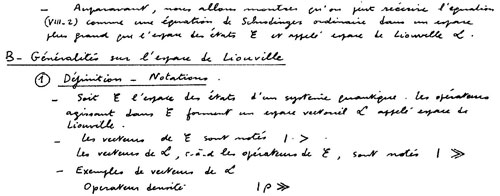 - Auparavant, nous allons montrer qu'on peut réécrire l'équation
(VIII-2) comme une équation de Schrödinger ordinaire dans un espace
plus grand que l'espace des états E et appelé espace de Liouville L.
B - Généralités sur l'espace de Liouville
① Définition - Notations.
- Soit E l'espace des états d'un système quantique. Les opérateurs
agissant dans E forment un espace vectoriel L appelé espace de
Liouville.
- Les vecteurs de E sont notés | >
Les vecteurs de L, c-à-d les opérateurs de E, sont notés | ≫
- Exemples de vecteurs de L
Opérateur densité |ρ ≫